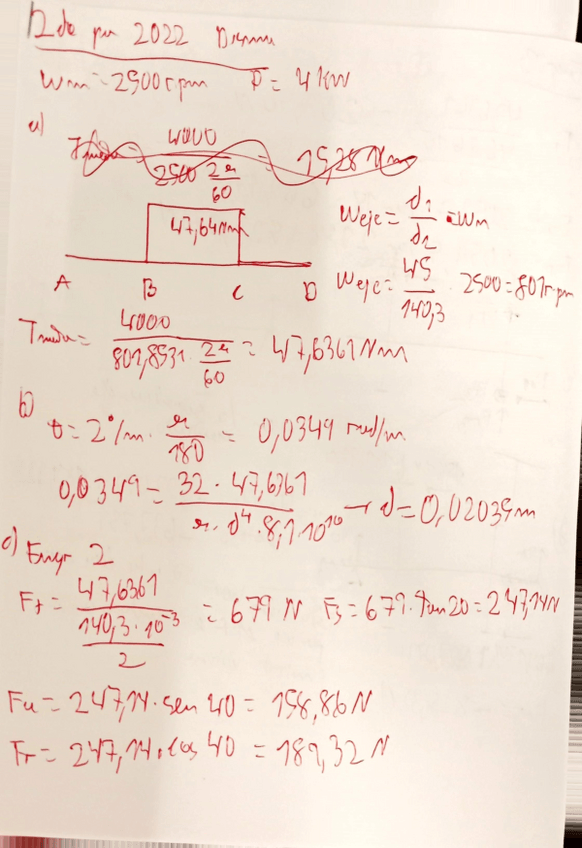 2do par 2022 Diseño
Wm = 2500 rpm P = 4 kW
a)
4000
2500 2π
60
= 15,28 Nm
47,64Nm
A B C D
Weje = d1 / d2 · Wm
Weje = 45 / 140,3 · 2500 = 801 rpm
= 4000 / 801,8531 · 2π / 60 = 47,6361 Nm
b)
θ = 2°/m · π / 180 = 0,0349 rad/m
0,0349 = 32 · 47,6361 / π · d⁴ · 8,1 · 10¹⁰ → d = 0,02039m
c) Engr 2
Ft = 47,6361 / 140,3 · 10⁻³ / 2 = 679 N Fs = 679 · tan 20 = 247,14N
Fa = 247,14 · sen 40 = 158,86 N
Fr = 247,14 · cos 40 = 189,32 N